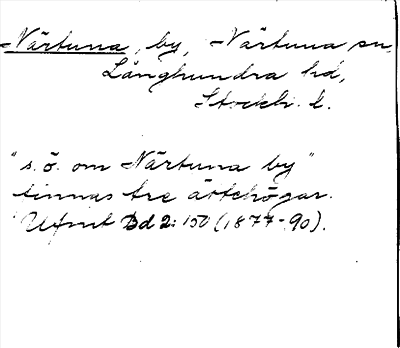 Närtuna, by, Närtuna sn,
Långhundra hd,
Stockh. l.
"s.ö. om Närtuna by"
finnas tre ättehögar.
Ufmt Bd 2: 150 (1877-90).